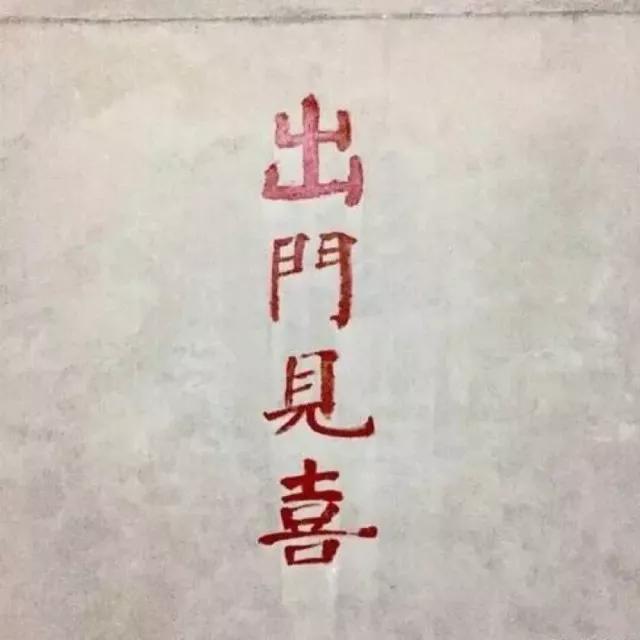 出門見喜